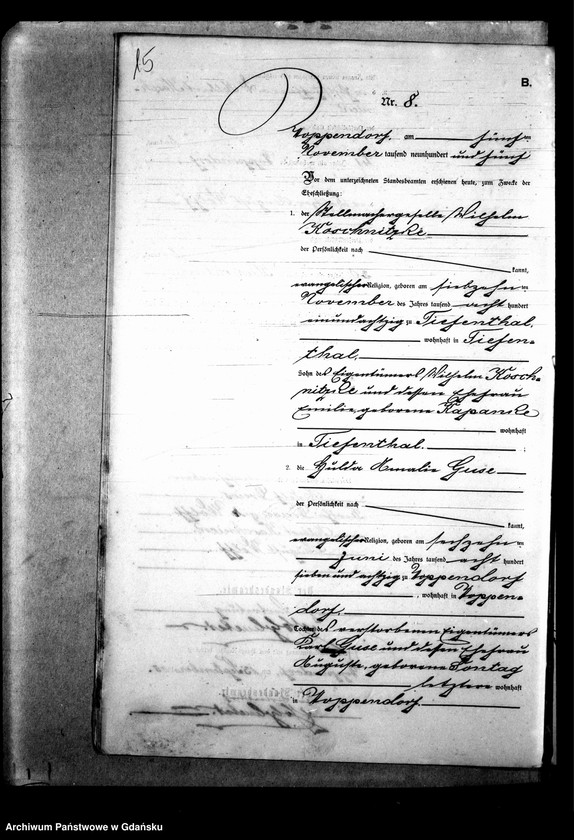 15
B.
Nr. 8.
Toppendorf, am fünften
November tausend neunhundert und fünf
Vor dem unterzeichneten Standesbeamten erschienen heute, zum Zwecke der
Eheschließung:
1. der Stellmachergeselle Wilhelm
Koschnitzke
der Persönlichkeit nach
kannt,
evangelischer Religion, geboren am siebzehnten
November des Jahres tausend acht hundert
einundachtzig zu Tiefenthal,
wohnhaft in Tiefen-
thal.
Sohn des Eigentümers Wilhelm Kosch-
nitzke und dessen Ehefrau
Emilie, geborene Kapanske
wohnhaft
in Tiefenthal. ;
2. die Hulda Amalie Guse
der Persönlichkeit nach
kannt,
evangelischer Religion, geboren am sechzehnten
Juni des Jahres tausend acht hundert
sieben und achtzig zu Toppendorf
, wohnhaft in Toppen-
dorf,
Tochter des verstorbenen Eigentümers
Karl Guse und dessen Ehefrau
Auguste, geborene Sontag
letztere wohnhaft
in Toppendorf
Archiwum Państwowe w Gdańsku